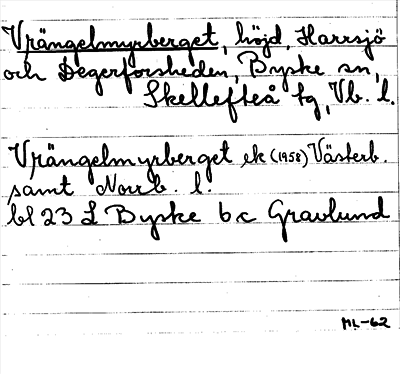 Vrängelmyrberget, höjd, Harrsjö
och Degerforsheden, Byske sn,
Skellefteå tg, Vb. l.
Vrängelmyrberget ek (1958) Västerb.
samt Norrb. l.
bl 23 L Byske b c Gravlund
ML-62